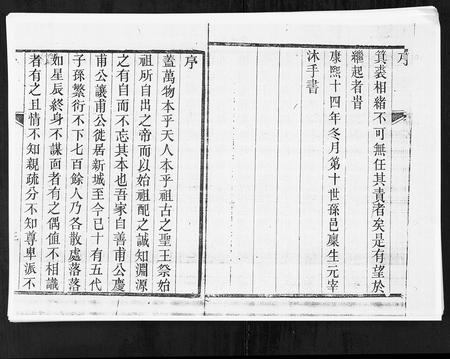 序
箕裘相緒不可無任其責者矣是有望於
繼起者旹
康熙十四年冬月第十世孫邑廩生元宰
沐手書
序
蓋萬物本乎天人本乎祖古之聖王祭始
祖所自出之帝而以始祖配之誠知淵源
之有自而不忘其本也吾家自善甫公慶
甫公讓甫公徙居新城至今已十有五代
子孫繁衍不下七百餘人乃各散處落落
如星辰終身不謀面者有之偶値不相識
者有之且情不知親疏分不知尊卑派不